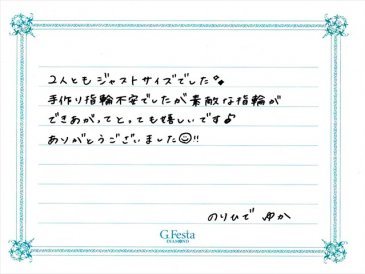 2人ともジャストサイズでした
手作り指輪不安でしたが素敵な指輪が
できあがってとっても嬉しいです♪
ありがとうございました☺!!
のりひで ゆか
G.Festa
DIAMOND